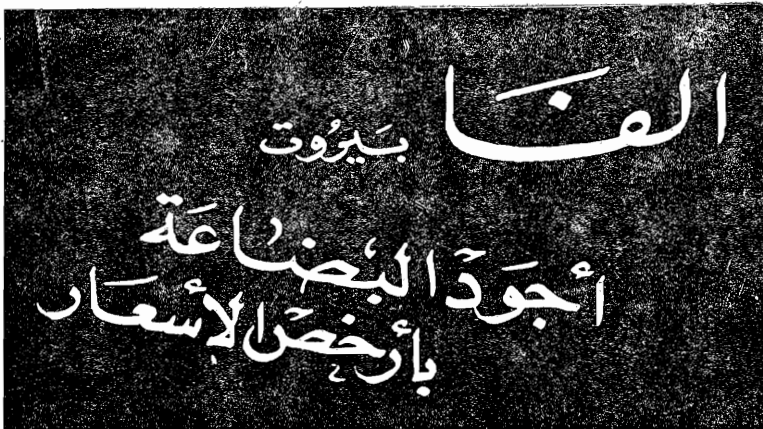 الفَا بَيرُوت
أجوَد البضَاعَة
بأرخص الأسعَار